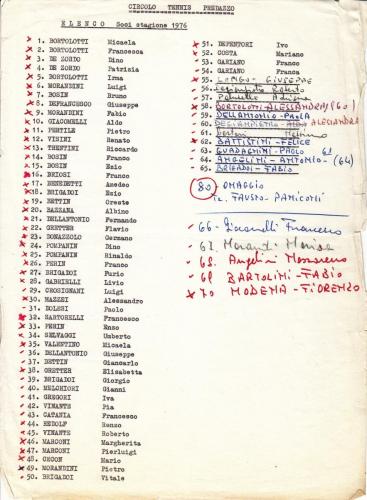 CIRCOLO TENNIS PREDAZZO
ELENCO Soci stagione 1976
1. BORTOLOTTI Micaela
2. BORTOLOTTI Francesca
3. DE ZORDO Dino
4. DE ZORDO Patrizia
5. BORTOLOTTI Irma
6. MORANDINI Luigi
7. BOSIN Bruno
8. DEFRANCESCO Giuseppe
9. MORANDINI Fabio
10. GIACOMELLI Aldo
11. PERTILE Pietro
12. TISINI Renato
13. TRENTINI Riccardo
14. BOSIN Franco
15. BOSIN Ezio
16. BRIOSI Franco
17. BENEDETTI Amedeo
18. BRIGADOI Ezio
19. BETTIN Oreste
20. BAZZANA Albino
21. DELLANTONIO Fernando
22. GRETTER Flavio
23. BONAZZOLO Germano
24. POMPANIN Dino
25. POMPANIN Rinaldo
26. PERIN Franco
27. BRIGADOI Furio
28. GABRIELLI Livio
29. CROSIGNANI Luigi
30. MAZZEI Alessandro
31. DOLESI Paolo
32. SARTORELLI Francesco
33. PERIN Enzo
34. SELVAGGI Umberto
35. VALENTINO Micaela
36. DELLANTONIO Giuseppe
37. BETTIN Giancarlo
38. GRETTER Elisabetta
39. BRIGADOI Giorgio
40. MELCHIORI Gianni
41. GREGORI Iva
42. VINANTE Pia
43. CATANIA Francesco
44. REDOLF Renzo
45. VINANTE Roberto
46. MARCONI Margherita
47. MARCONI Pierluigi
48. CECON Mario
49. MORANDINI Pietro
50. BRIGADOI Vitale
51. DEFENTORI Ivo
52. COSTA Mariano
53. GARIANO Franco
54. GARIANO Franca
55. LONGO GIUSEPPE
56. Roberto
57. Adriana
58. BORTOLOTTI ALESSANDRA (60)
59. DELLANTONIO PAOLA
60. ALESSANDRA
61.
62. BATTISTINI - FELICE
63. GUADAGNINI - PAOLO 61
64. ANGELINI - ANTONIO - (64)
65. BRIGADOI - FABIO
80 OMAGGIO
FAUSTO - PANICONI
66 - Giacomelli Francesco
67. Morandi
68. Angelini Massimo
69 BARTOLINI - FABIO
70 MODENA - FIORENZO